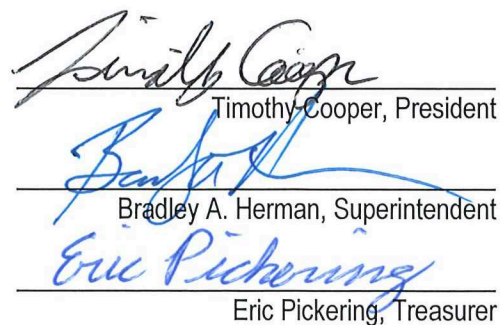 Timothy Cooper
Timothy Cooper, President
Bradley A. Herman, Superintendent
Eric Pickering
Eric Pickering, Treasurer